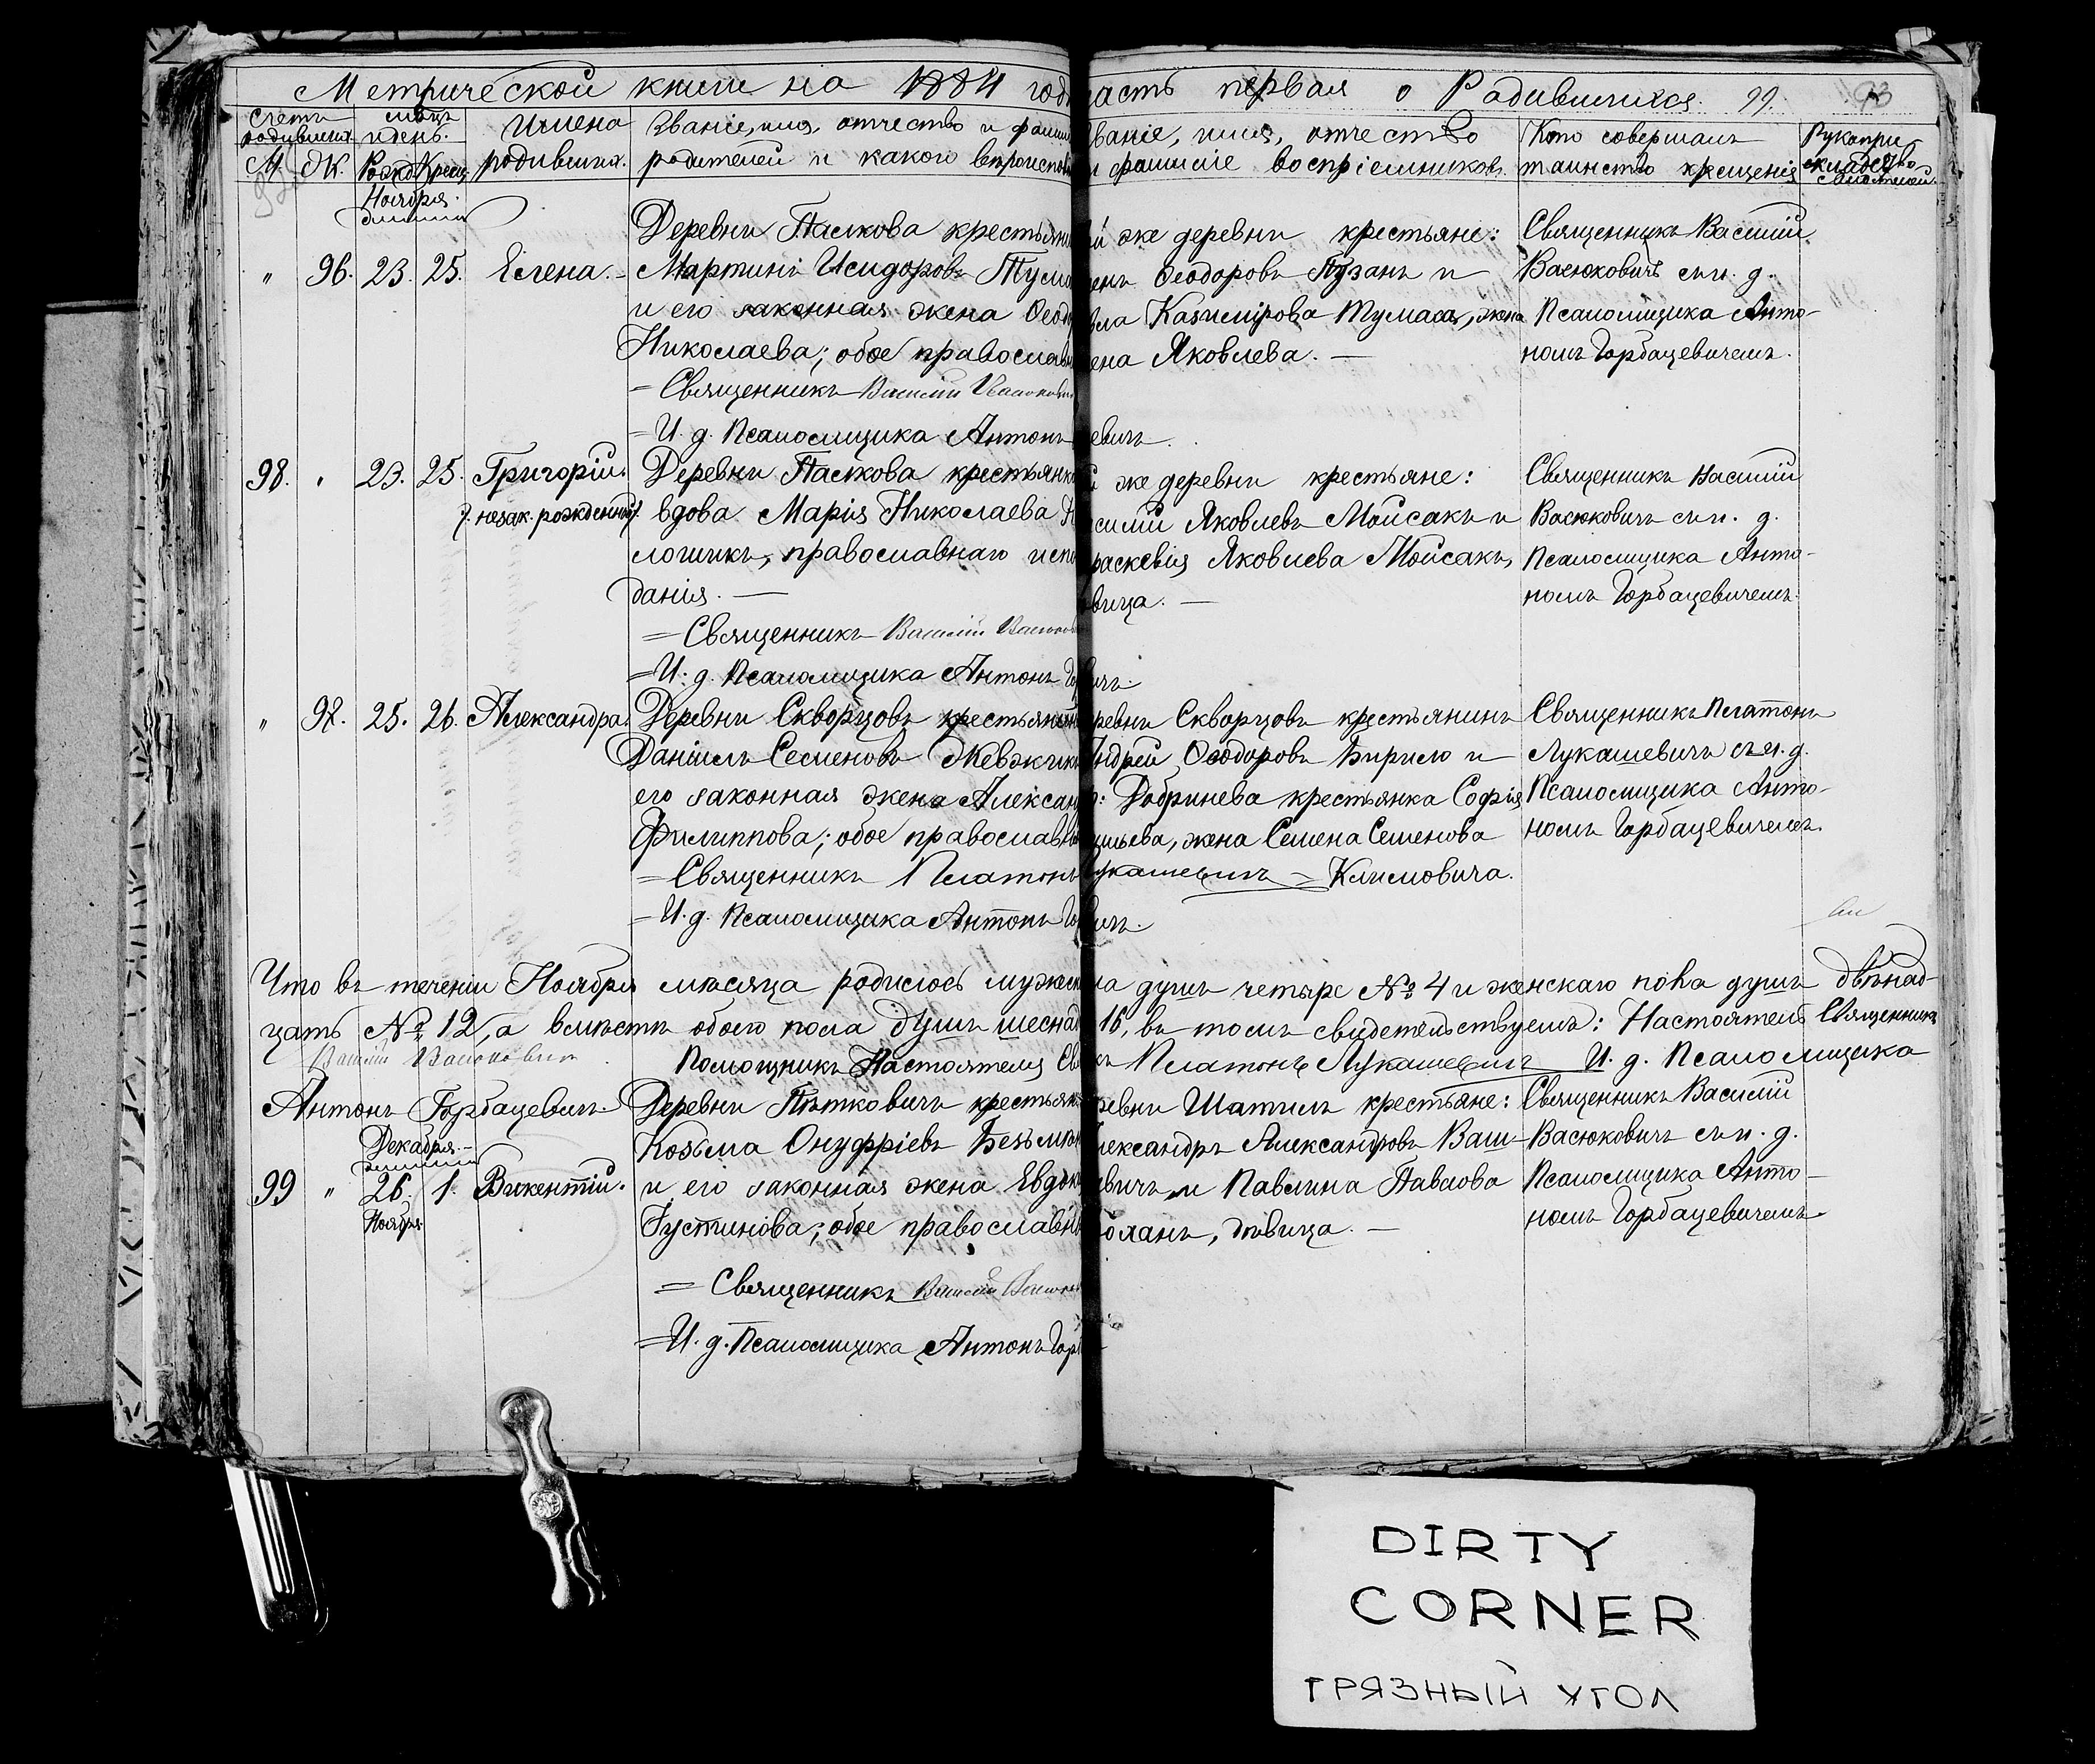 Метрической книги на 1884 год
часть первая о Родившихся. 99.
93
Счетъ родившихся.
М. Ж.
мѣсяцъ и день.
Рожд. Крещ.
Имена родившихся.
Званіе, имя, отчество и фамил
родителей и какого вѣроиспов
Званіе, имя, отчество
и фамиліе воспріемниковъ.
Кто совершалъ
таинство крещенія
Рукопри-
кладство
Ноября
Деревни Пасткова крестьянин
" 96. 23. 25. Елена. Мартинъ Исидоровъ Тума
и его законная жена Ѳеод
Николаева; обое православн
= Священникъ Василій Васюкович
= И. д. Псаломщика Антонъ
й же деревни крестьяне:
Ѳеодоровъ Пузанъ и
Казимірова Тумаса, жена
Яковлева. —
евичъ.
Священникъ Василій
Васюковичъ съ и. д.
Псаломщика Анто-
номъ Горбацевичемъ.
98. " 23. 25. Григорій. Деревни Пасткова крестьянка
незак. рожденный вдова Марія Николаева
православнаго испо
данія. —
= Священникъ Василій Васюков
= И. д. Псаломщика Антонъ Го
й же деревни крестьяне:
силій Яковлевъ Мойсакъ и
раскевія Яковлева Мойсакъ,
вица. —
вичъ.
Священникъ Василій
Васюковичъ съ и. д.
Псаломщика Анто-
номъ Горбацевичемъ.
" 97. 25. 26. Александра. Деревни Скворцовъ крестьянинъ
Даніилъ Семеновъ Жевжикъ
его законная жена Алексан
Филиппова; обое православн
= Священникъ Платонъ
= И. д. Псаломщика Антонъ Го
ревни Скворцовъ крестьянинъ
Андрей Ѳеодоровъ Бирило и
Добринева крестьянка Софія
сильева, жена Семена Семенова
Лукашевичъ = Климовича.
вичъ.
Священникъ Платонъ
Лукашевичъ съ и. д.
Псаломщика Анто-
номъ Горбацевичемъ.
Что въ теченіи Ноября мѣсяца родилось мужеск
ла душъ четыре № 4 и женскаго пола душъ двѣнад-
цать № 12, а вмѣстѣ обоего пола душъ шеснад
16, въ томъ свидетельствуемъ: Настоятель Священникъ
Василій Васюковичъ. Помощникъ Настоятеля Свя
Платонъ Лукашевичъ И. д. Псаломщика
Антонъ Горбацевичъ.
Декабря.
Деревни Пятковичъ крестьян
Козьма Онуфріевъ Безъмѣн
99 " 26. 1. Викентій. и его законная жена Евдок
Ноября Густинова; обое православн
= Священникъ Василій Васюков
= И. д. Псаломщика Антонъ Гор
ревни Шатилъ крестьяне:
лександръ Александровъ Ваш-
евичъ и Павлина Павлова
дѣвица. —
Священникъ Василій
Васюковичъ съ и. д.
Псаломщика Анто-
номъ Горбацевичемъ.
DIRTY
CORNER
ГРЯЗНЫЙ УГОЛ